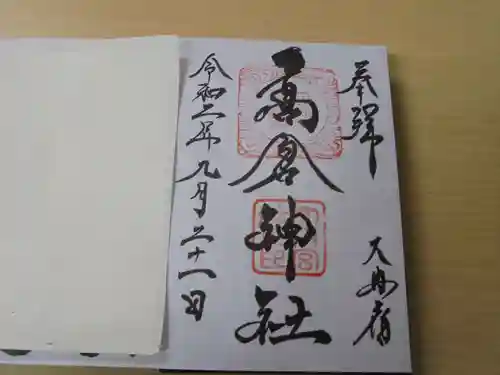 奉拝
久御宿
高倉神社
令和二年九月二十一日